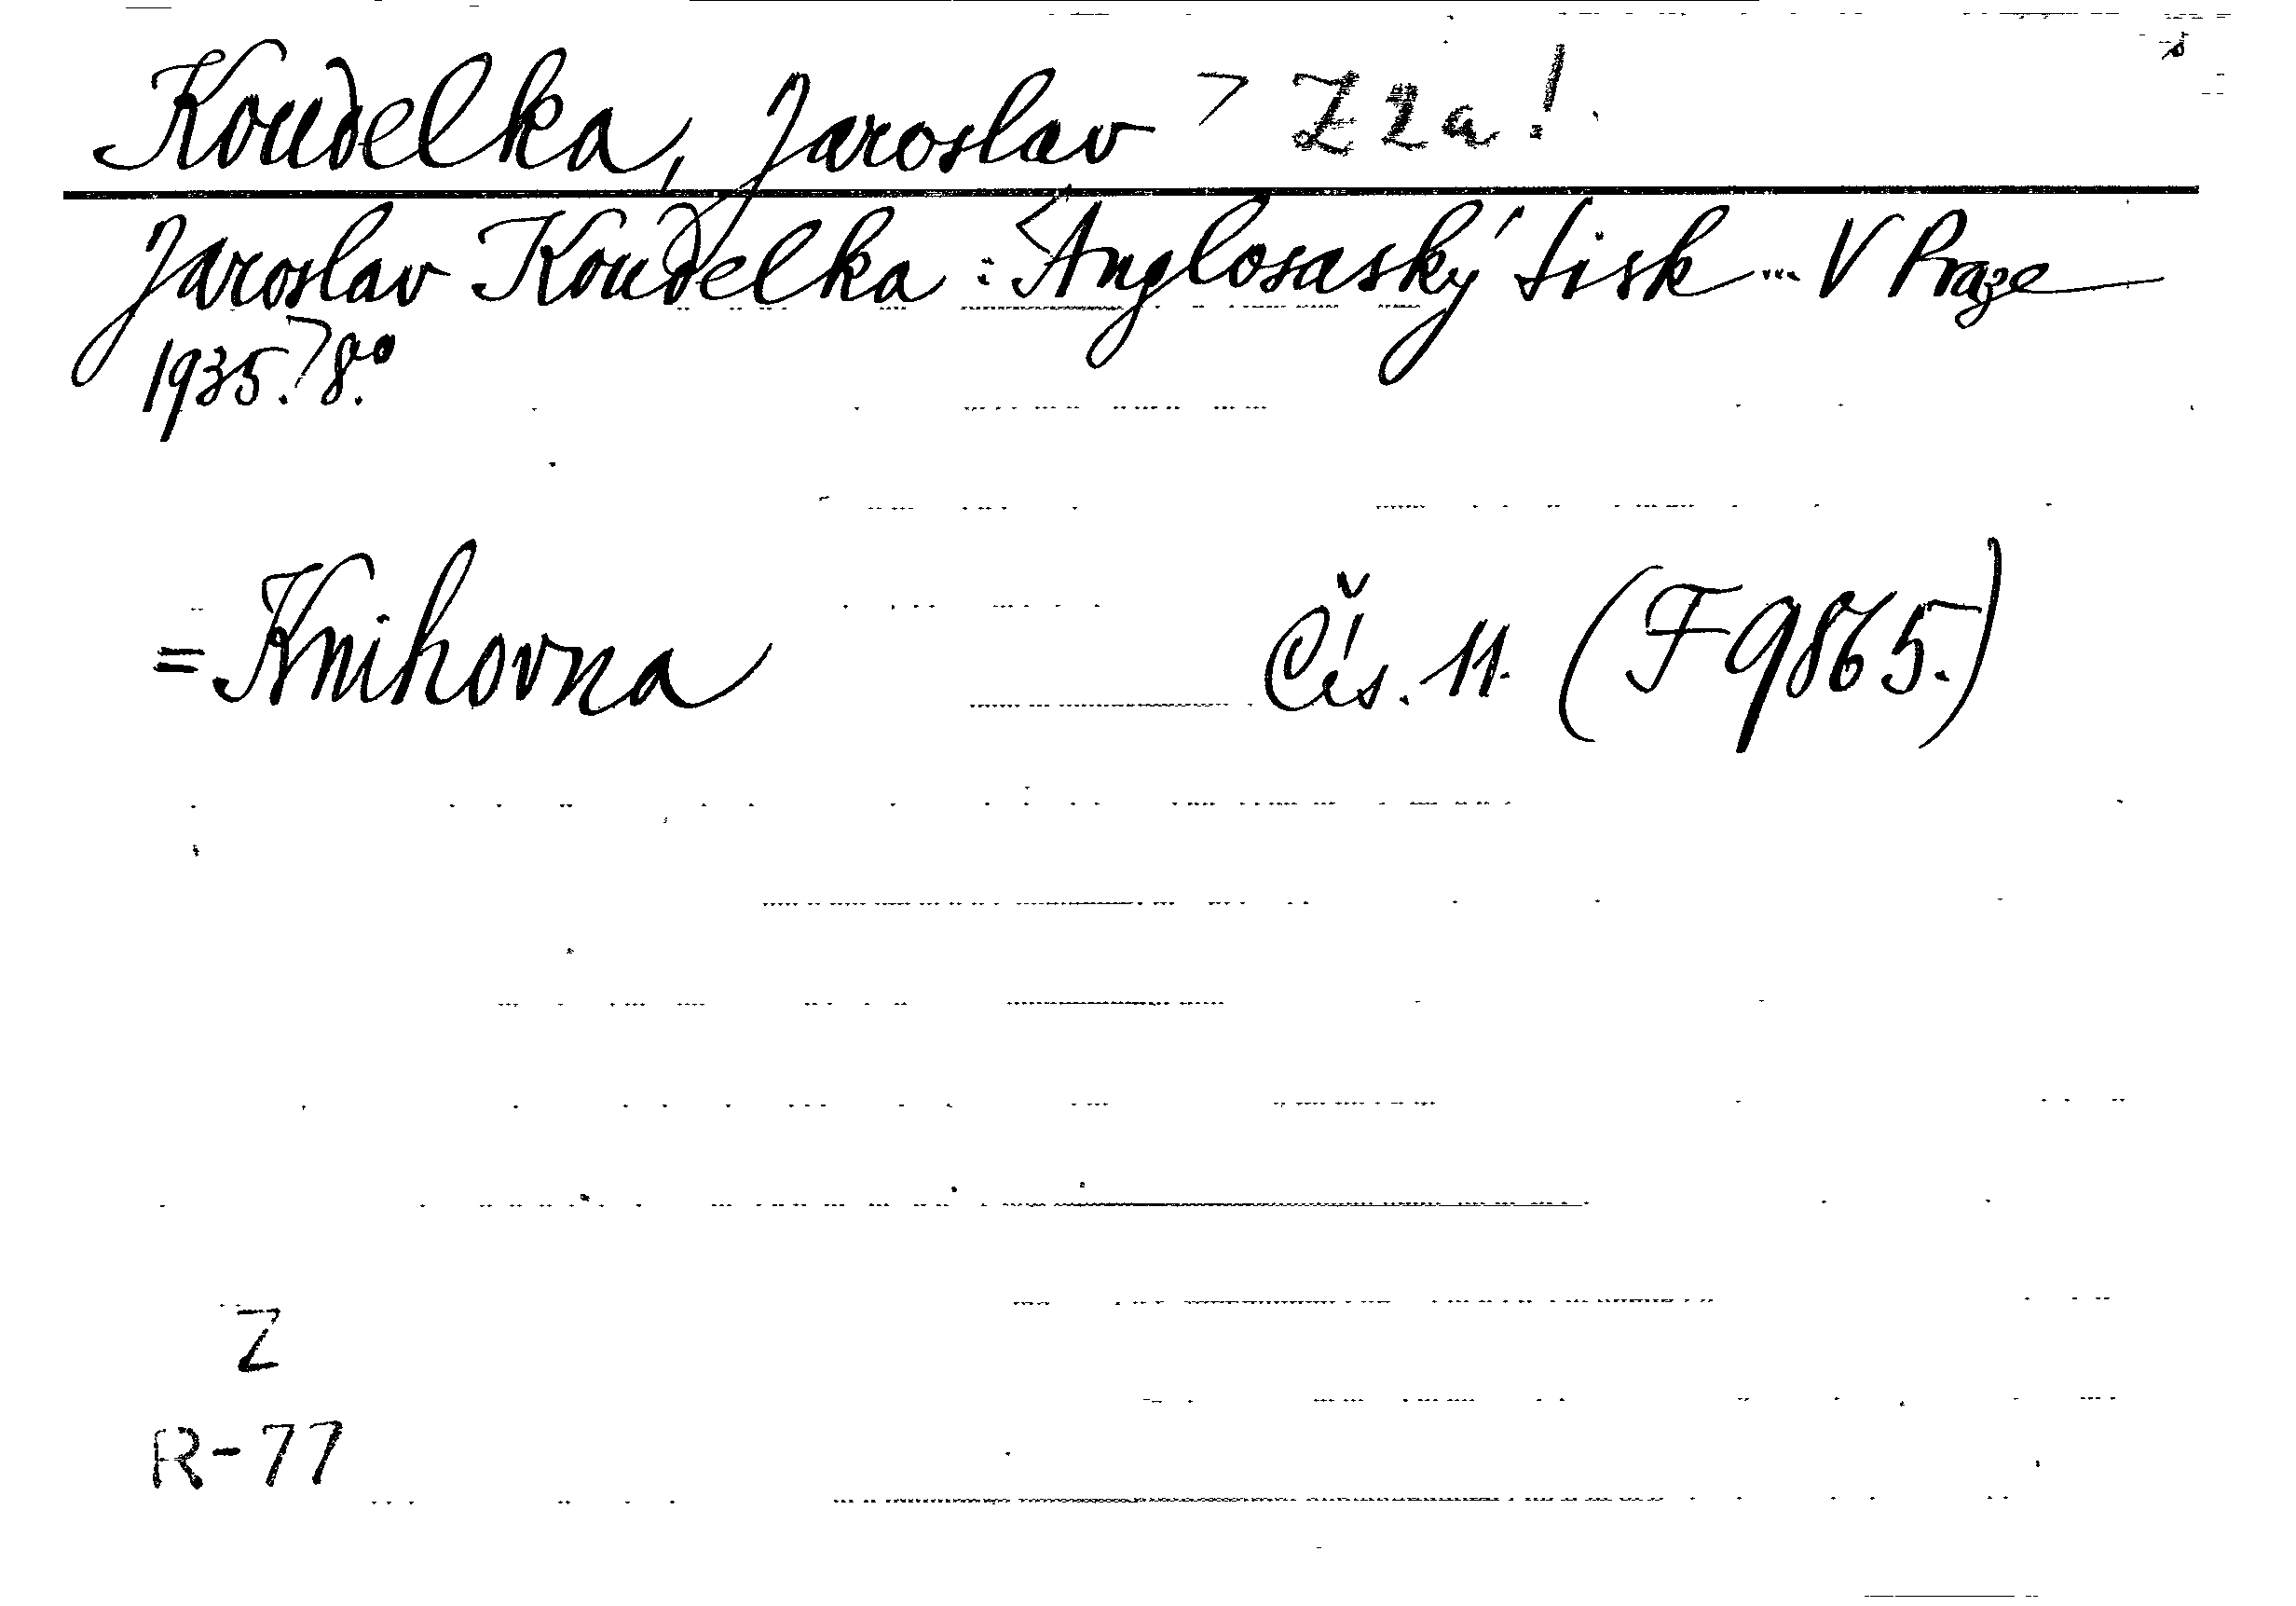 Koudelka, Jaroslav > Z2a!
Jaroslav Koudelka: <Anglosaský tisk... V Praze
1935.> 8.°
= Knihovna Čís. 11. (F 9865.)
Z
R-77